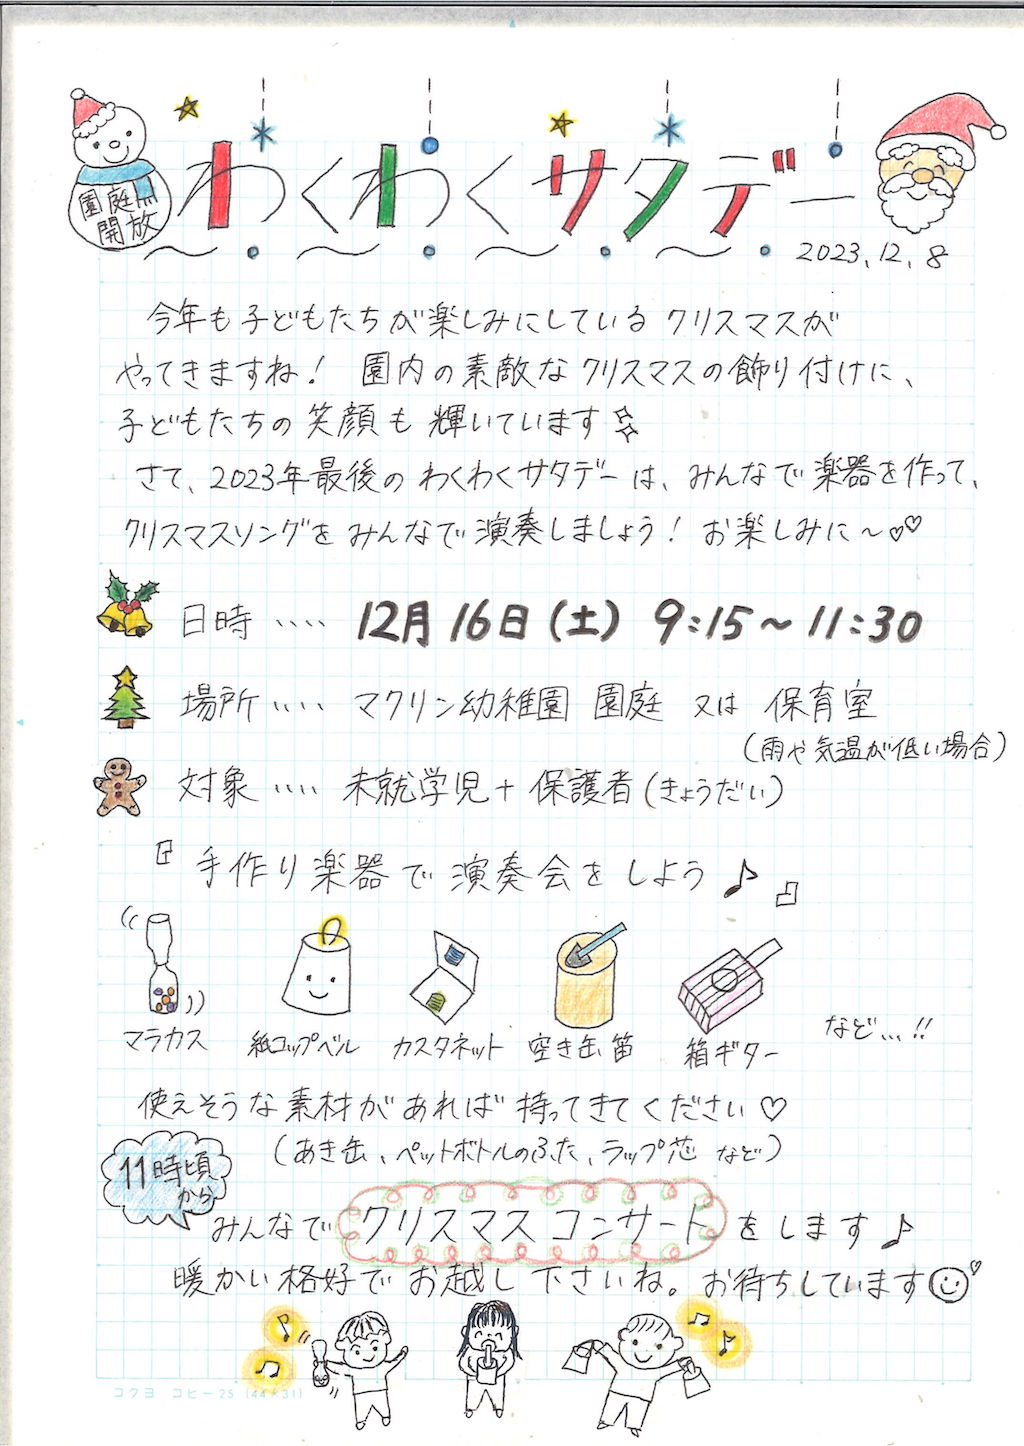 園庭
開放
わくわくサタデー
2023.12.8
今年も子どもたちが楽しみにしているクリスマスが
やってきますね! 園内の素敵なクリスマスの飾り付けに、
子どもたちの笑顔も輝いています
さて、2023年最後のわくわくサタデーは、みんなで楽器を作って、
クリスマスソングをみんなで演奏しましょう! お楽しみに～♡♡
日時 ‥‥ 12月16日(土) 9:15～11:30
場所 ‥‥ マクリン幼稚園 園庭 又は 保育室
(雨や気温が低い場合)
対象 ‥‥ 未就学児+保護者(きょうだい)
『手作り楽器で演奏会をしよう♪』
マラカス 紙コップベル カスタネット 空き缶笛 箱ギター など…!!
使えそうな素材があれば持ってきてください♡
(あき缶、ペットボトルのふた、ラップ芯 など)
11時頃
から
みんなでクリスマスコンサートをします♪
暖かい格好でお越し下さいね。お待ちしています☺♡
コクヨ コヒー25 (44×31)